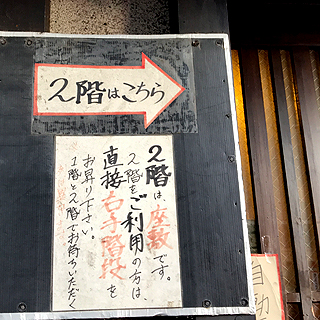 2階はこちら
2階は座敷です。
2階をご利用の方は、
直接右手階段を
お昇り下さい。
1階と2階でお待ちいただく
自動